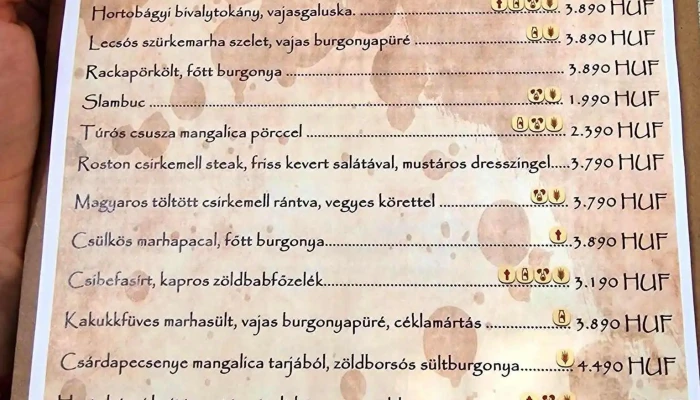 Hortobágyi bivalytokány, vajasgaluska. 3.890 HUF
Lecsós szürkemarha szelet, vajas burgonyapüré 3.890 HUF
Rackapörkölt, főtt burgonya 3.890 HUF
Slambuc 1.990 HUF
Túrós csusza mangalica pörccel 2.390 HUF
Roston csirkemell steak, friss kevert salátával, mustáros dresszingel.....3.790 HUF
Magyaros töltött csirkemell rántva, vegyes körettel 3.790 HUF
Csülkös marhapacal, főtt burgonya 3.890 HUF
Csibefasírt, kapros zöldbabfőzelék 3.190 HUF
Kakukkfüves marhasült, vajas burgonyapüré, céklamártás 3.890 HUF
Csárdapecsenye mangalica tarjából, zöldborsós sültburgonya 4.490 HUF